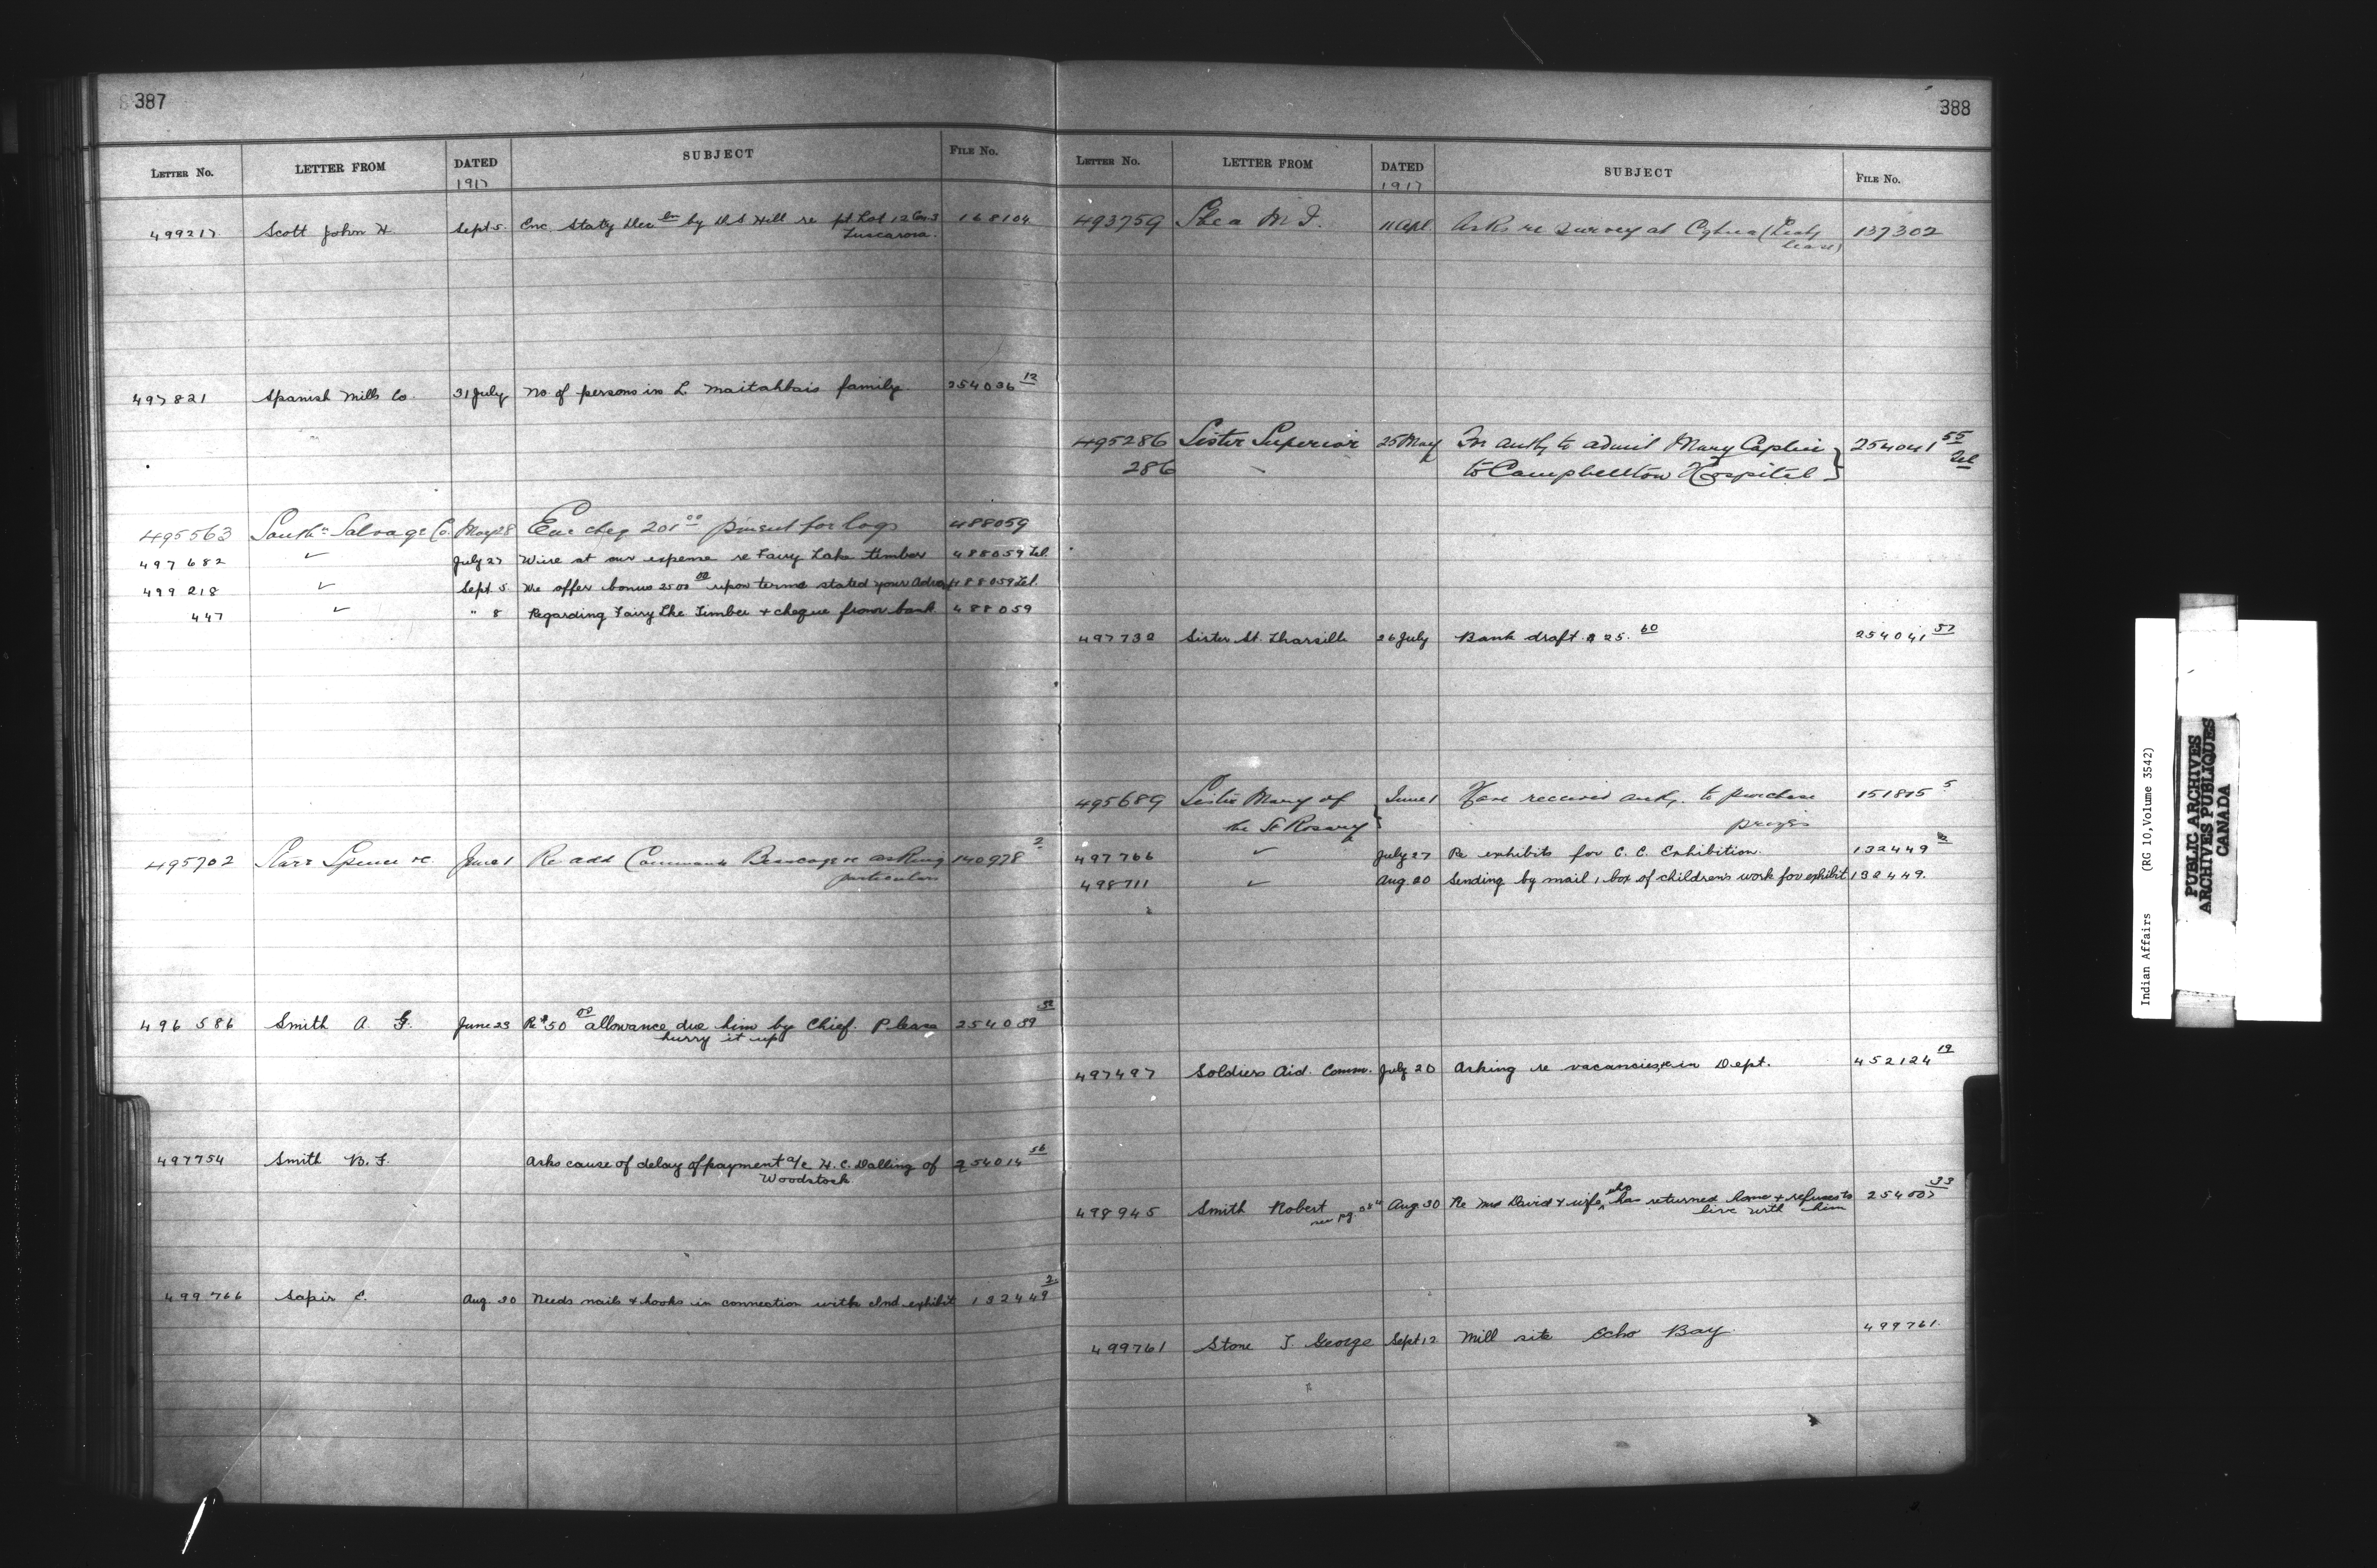 387
LETTER No. LETTER FROM DATED SUBJECT FILE No.
1917
499217 Scott John H. Sept 5. Enc. Staty Dec by D S Hill re pt Lot 12 Con 3 168104
Tuscarora.
497821 Spanish Mills Co. 31 July No of persons in L Maitahbais family. 254036 12
495563 South Salvage Co. May 28 Enc cheq 201 00 for logs 488059
497682 ✓ July 27 Wire at our expense re Fairy Lake timber 488059 Tel.
499218 ✓ Sept 5. We offer bonus 2500 00 upon terms stated your 488059 Tel.
447 ✓ " 8 Regarding Fairy Lke Timber + cheque from bank 488059
495702 Starr Spence June 1 Re add asking 140978 2
particulars
496586 Smith A. G. June 23 Re $50 00 allowance due him by Chief. Please 254039 52
hurry it up
497754 Smith B. F. Asks cause of delay of payment a/c H. C. Dalling of 254014 56
Woodstock
499766 Sapir E. Aug. 30 Needs nails & hooks in connection with Ind. exhibit 132449 2
388
LETTER No. LETTER FROM DATED SUBJECT FILE No.
1917
493759 Shea M. J. 11 Apl. Asks re survey at 137302
lease)
495286 Sister Superior 25 May For authy to admit Mary Caplin 254041 55
286 to Campbellton Hospital } Tel
497732 Sister St. Tharsille 26 July Bank draft $25. 60 254041 57
495689 Sister Mary of June 1 Have received authy. to purchase 151815 5
the St Rosary } prizes
497766 ✓ July 27 Re exhibits for C. C. Exhibition. 132449
498711 ✓ Aug. 20 Sending by mail 1 box of children's work for exhibit 132449.
497497 Soldiers Aid. Comm. July 20 Asking re vacancies in Dept. 452124 19
498945 Smith Robert Aug 30 Re David & wife, who has returned home & refuses to 254007 33
see pg live with him
499761 Stone J. George Sept 12 Mill site Echo Bay. 499761.
Indian Affairs (RG 10, Volume 3542)
PUBLIC ARCHIVES
ARCHIVES PUBLIQUES
CANADA